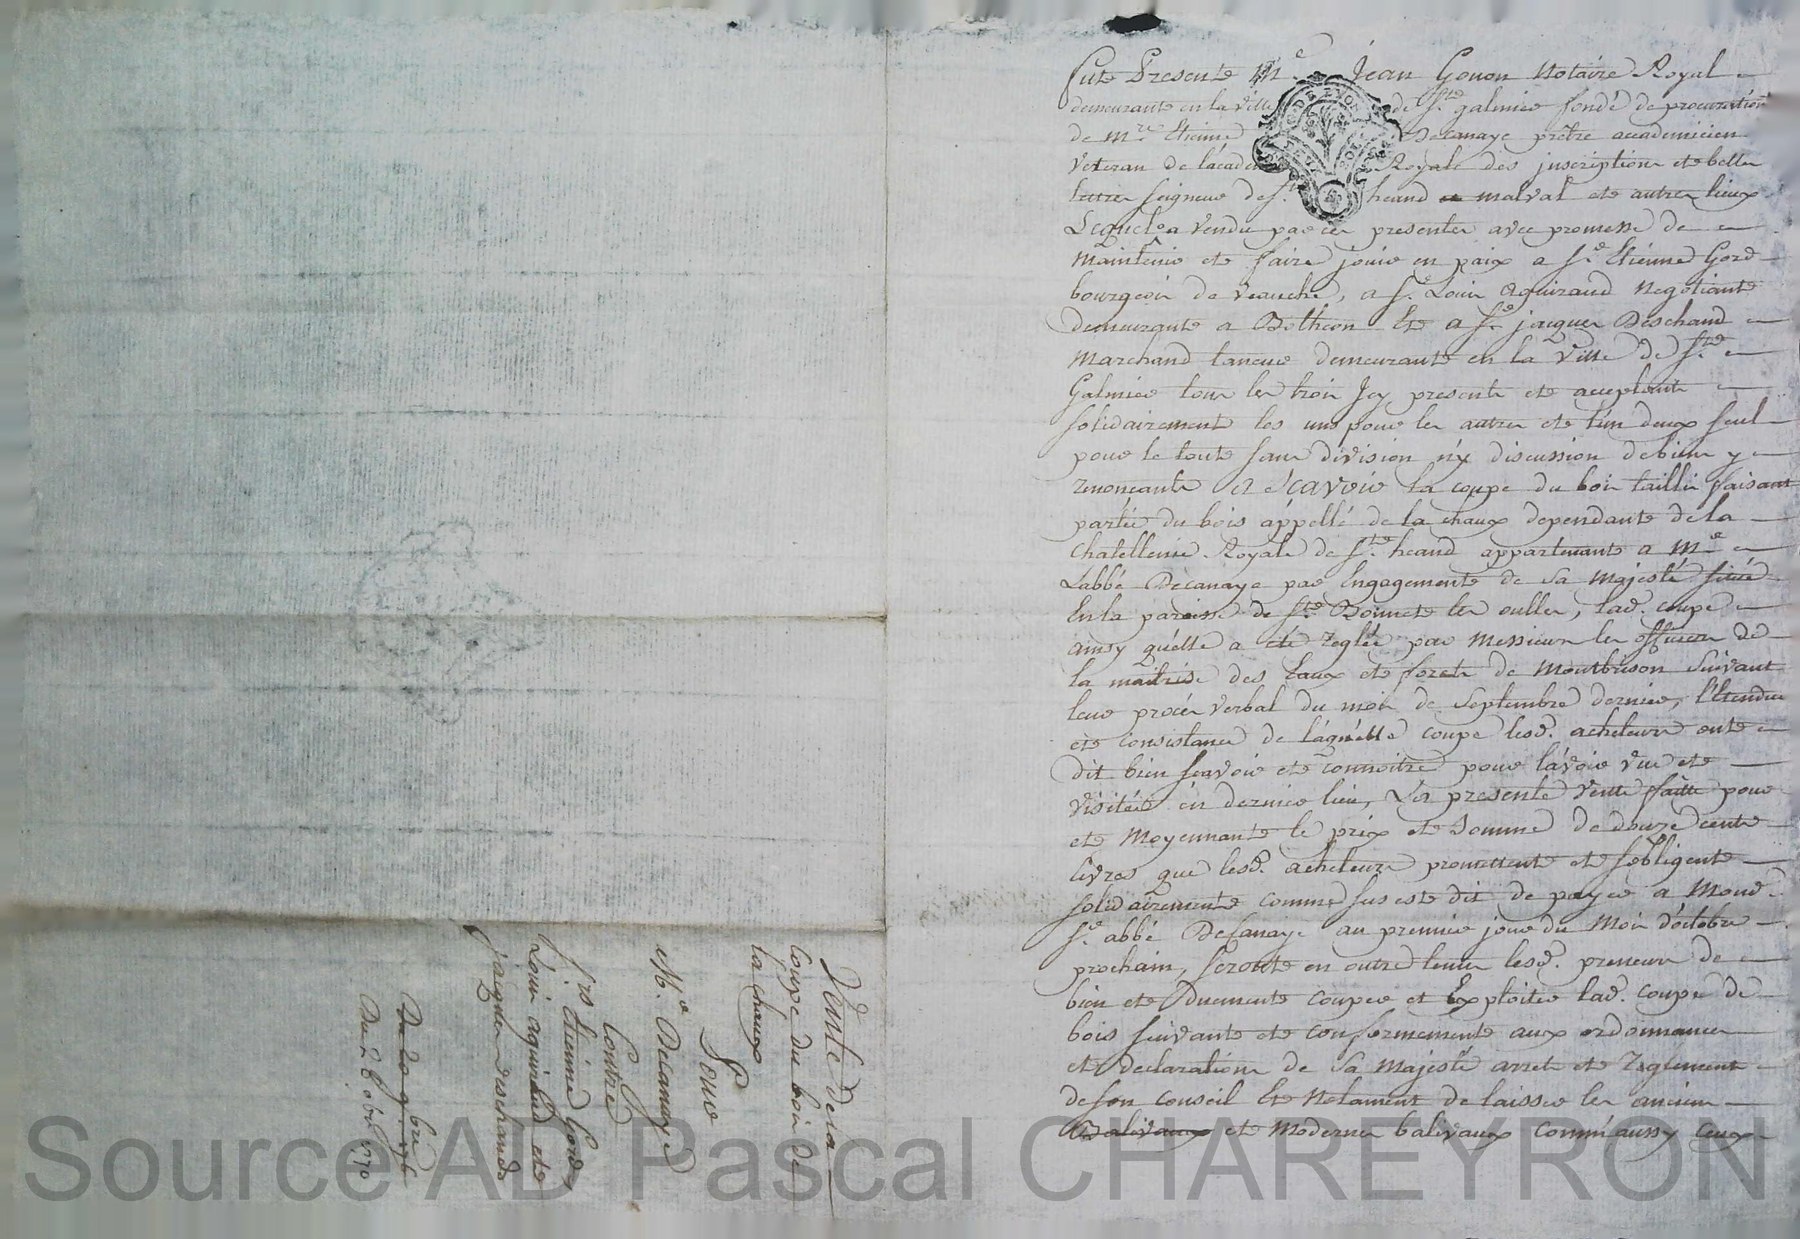 fut Present Me Jean Gonon Notaire Royal
demeurant en la ville de St. galmier fondé de procuration
de mre Etienne Decanaye prêtre academicien
veteran de l'academie Royale des inscriptions et belles
lettres seigneur de St. heand malval et autres lieux
Lequel a vendu par ces presentes avec promesse de
maintenir et faire jouir en paix a Sr. Etienne Gord
bourgeois de veauche, a Sr. Louis aguiraud Negotiant
demeurant a Botheon Et a Sr. jacques Deschand
Marchand taneur demeurant en la ville de St.
Galmier tous les trois Icy presents et acceptant
solidairement les uns pour les autres et l'un deux seul
pour le tout sans division n'y discussion de biens y
renonçants Et Sçavoir la coupe du bois taillis faisant
partie du bois appellé de la chaux dependant de la
Chatellenie Royale de St. heand appartenant a Mr
Labbé Decanaye par Engagement de Sa Majesté situé
En la paroisse de St. Bonnet les oulles, lad. coupe
ainsy qu'elle a été reglée par Messieurs les officiers de
la maitrise des Eaux et forets de Montbrison Suivant
leur procés verbal du mois de Septembre dernier, l'étendue
et consistance de laquelle coupe lesd. acheteurs ont
dit bien sçavoir et connoitre pour l'avoir vue et
visitée en dernier lieu, La presente vente faitte pour
et Moyennant le prix et Somme de douze cents
livres que lesd. acheteurs promettent et s'obligent
solidairement comme sus est dit de payer a Mond.
Sr. abbé Decanaye au premier jour du Mois d'octobre
prochain, seront en outre tenus lesd. preneurs de
bien et Duement couper et Exploiter lad. coupe de
bois suivant et conformement aux ordonnances
et declarations de Sa Majesté arrets et reglements
de son conseil Et Notament de laisser les anciens
Balivaux et Modernes balivaux comm'aussy ceux
Vente de la
Coupe du bois de
la chaux
Pour
Mr. Decanaye
Contre
Srs Etienne Gord,
Louis aguiraud et
jacques deschands
Du 28bre 1770
Source AD Pascal CHAREYRON